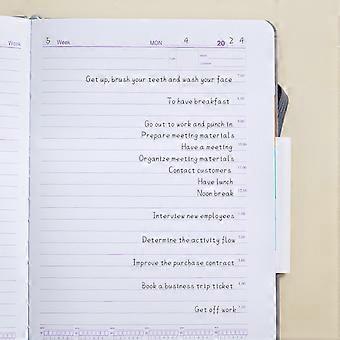 5 Week MON 4 20 2 4
Get up, brush your teeth and wash your face
To have breakfast
Go out to work and punch in
Prepare meeting materials
Have a meeting
Organize meeting materials
Contact customers
Have lunch
Noon break
Interview new employees
Determine the activity flow
Improve the purchase contract
Book a business trip ticket
Get off work